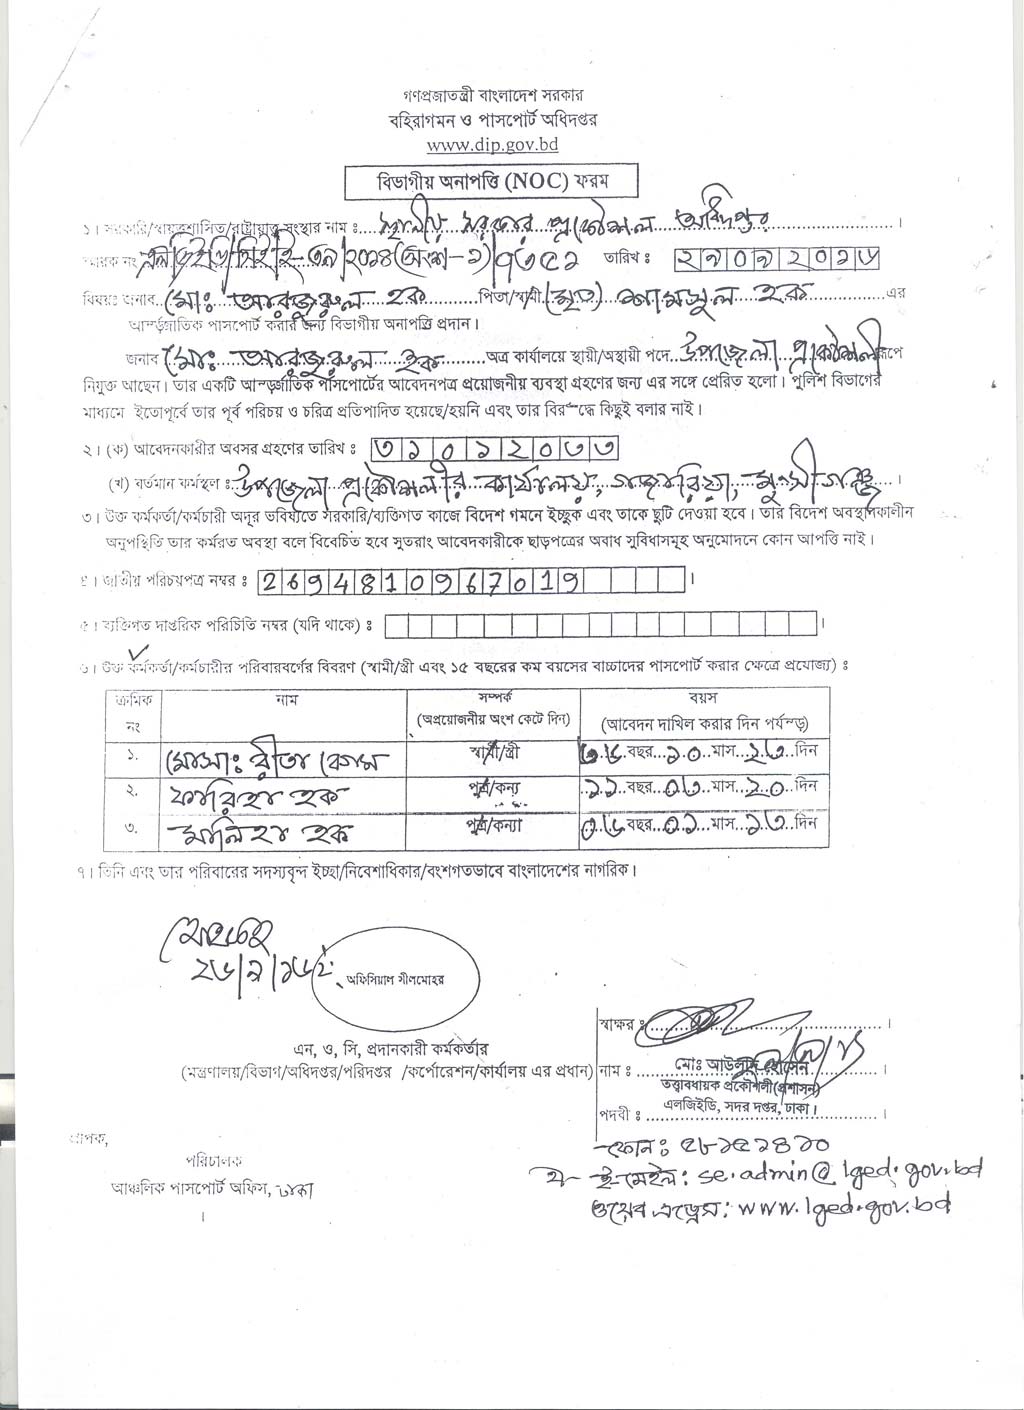 গণপ্রজাতন্ত্রী বাংলাদেশ সরকার
বহিরাগমন ও পাসপোর্ট অধিদপ্তর
www.dip.gov.bd
বিভাগীয় অনাপত্তি (NOC) ফরম
১। সরকারি/স্বায়ত্বশাসিত/রাষ্ট্রায়াত্ব সংস্থার নাম ঃ স্থানীয় সরকার প্রকৌশল অধিদপ্তর ।
স্মারক নং এলজিইডি/সিই/ই- /২০১৪(অংশ-১)/৭৩৫১ তারিখ ঃ ২৯০৯২০১৬
বিষয়ঃ জনাব মোঃ আরজুরুল হক পিতা/স্বামী (মৃত) শামসুল হক এর
আর্ন্তজাতিক পাসপোর্ট করার জন্য বিভাগীয় অনাপত্তি প্রদান।
জনাব মোঃ আরজুরুল হক অত্র কার্যালয়ে স্থায়ী/অস্থায়ী পদে উপজেলা প্রকৌশলী রূপে
নিযুক্ত আছেন। তার একটি আর্ন্তজাতিক পাসপোর্টের আবেদনপত্র প্রয়োজনীয় ব্যবস্থা গ্রহণের জন্য এর সঙ্গে প্রেরিত হলো। পুলিশ বিভাগের
মাধ্যমে ইতোপূর্বে তার পূর্ব পরিচয় ও চরিত্র প্রতিপাদিত হয়েছে/হয়নি এবং তার বিরুদ্ধে কিছুই বলার নাই।
২। (ক) আবেদনকারীর অবসর গ্রহণের তারিখ ঃ ৩১০১২০৩৩
(খ) বর্তমান কর্মস্থল ঃ উপজেলা প্রকৌশলীর কার্যালয়, গজারিয়া, মুন্সীগঞ্জ ।
৩। উক্ত কর্মকর্তা/কর্মচারী অদূর ভবিষ্যতে সরকারি/ব্যক্তিগত কাজে বিদেশ গমনে ইচ্ছুক এবং তাকে ছুটি দেওয়া হবে। তার বিদেশ অবস্থানকালীন
অনুপস্থিতি তার কর্মরত অবস্থা বলে বিবেচিত হবে সুতরাং আবেদকারীকে ছাড়পত্রের অবাধ সুবিধাসমূহ অনুমোদনে কোন আপত্তি নাই।
৪। জাতীয় পরিচয়পত্র নম্বর ঃ 2694810967019 ।
৫। ব্যক্তিগত দাপ্তরিক পরিচিতি নম্বর (যদি থাকে) ঃ ।
৬। উক্ত কর্মকর্তা/কর্মচারীর পরিবারবর্গের বিবরণ (স্বামী/স্ত্রী এবং ১৫ বছরের কম বয়সের বাচ্চাদের পাসপোর্ট করার ক্ষেত্রে প্রযোজ্য) ঃ
ক্রমিক নং নাম সম্পর্ক (অপ্রয়োজনীয় অংশ কেটে দিন) বয়স (আবেদন দাখিল করার দিন পর্যন্ত)
১. মোসাঃ রীতা বেগম স্বামী/স্ত্রী ৩৬ বছর ১০ মাস ২৩ দিন
২. ফারিহা হক পুত্র/কন্যা ১১ বছর ০৬ মাস ২০ দিন
৩. মালিহা হক পুত্র/কন্যা ০৬ বছর ০১ মাস ১৩ দিন
৭। তিনি এবং তার পরিবারের সদস্যবৃন্দ ইচ্ছা/নিবেশাধিকার/বংশগতভাবে বাংলাদেশের নাগরিক।
অফিসিয়াল সীলমোহর
স্বাক্ষর ঃ ।
এন, ও, সি, প্রদানকারী কর্মকর্তার
(মন্ত্রণালয়/বিভাগ/অধিদপ্তর/পরিদপ্তর /কর্পোরেশন/কার্যালয় এর প্রধান) নাম ঃ মোঃ আউলাদ হোসেন ।
তত্ত্বাবধায়ক প্রকৌশলী(প্রশাসন)
পদবী ঃ এলজিইডি, সদর দপ্তর, ঢাকা। ।
প্রাপক,
ফোন: ৫৮১৫১৪১০
পরিচালক
ই-মেইল: se.admin@lged.gov.bd
আঞ্চলিক পাসপোর্ট অফিস, ঢাকা
ওয়েব এড্রেস: www.lged.gov.bd
।